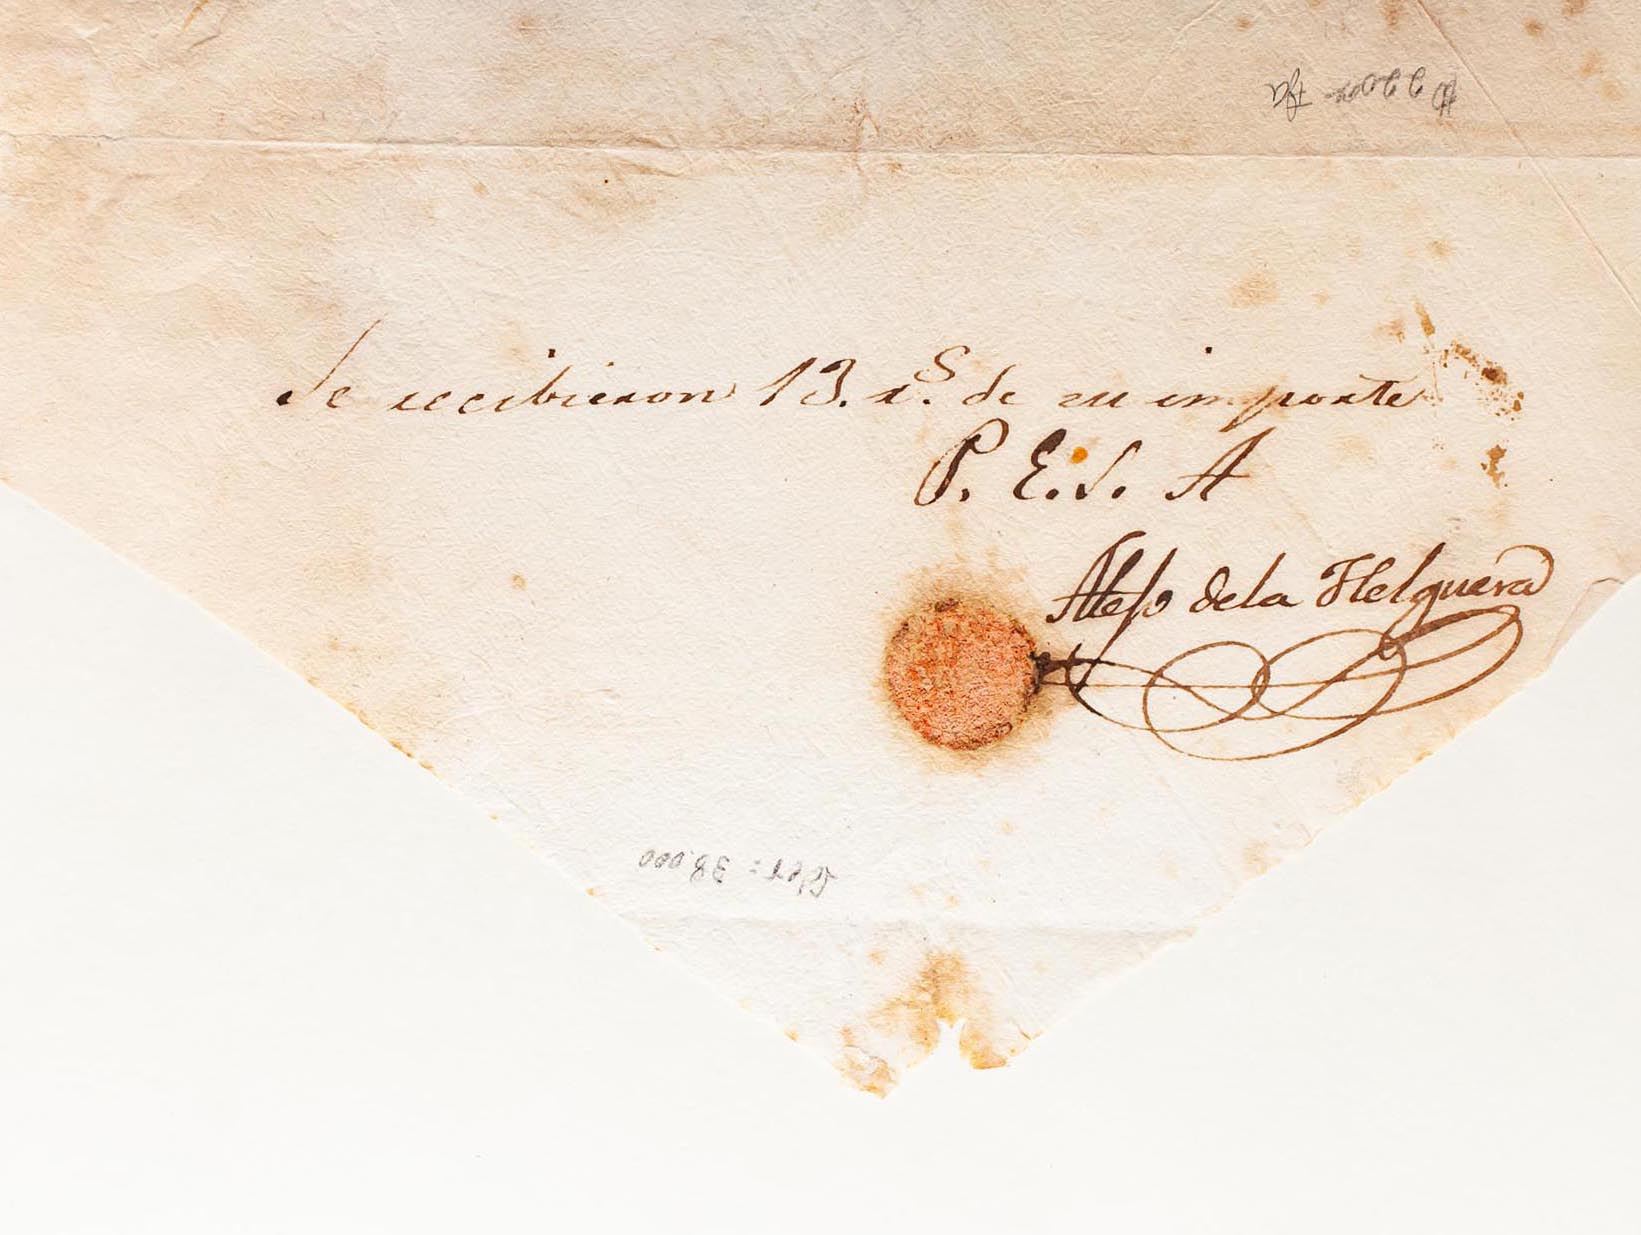 Se recibieron 13. rˢ. de su importe
P. E. S. A
Alejo dela Helguera
= 38.000